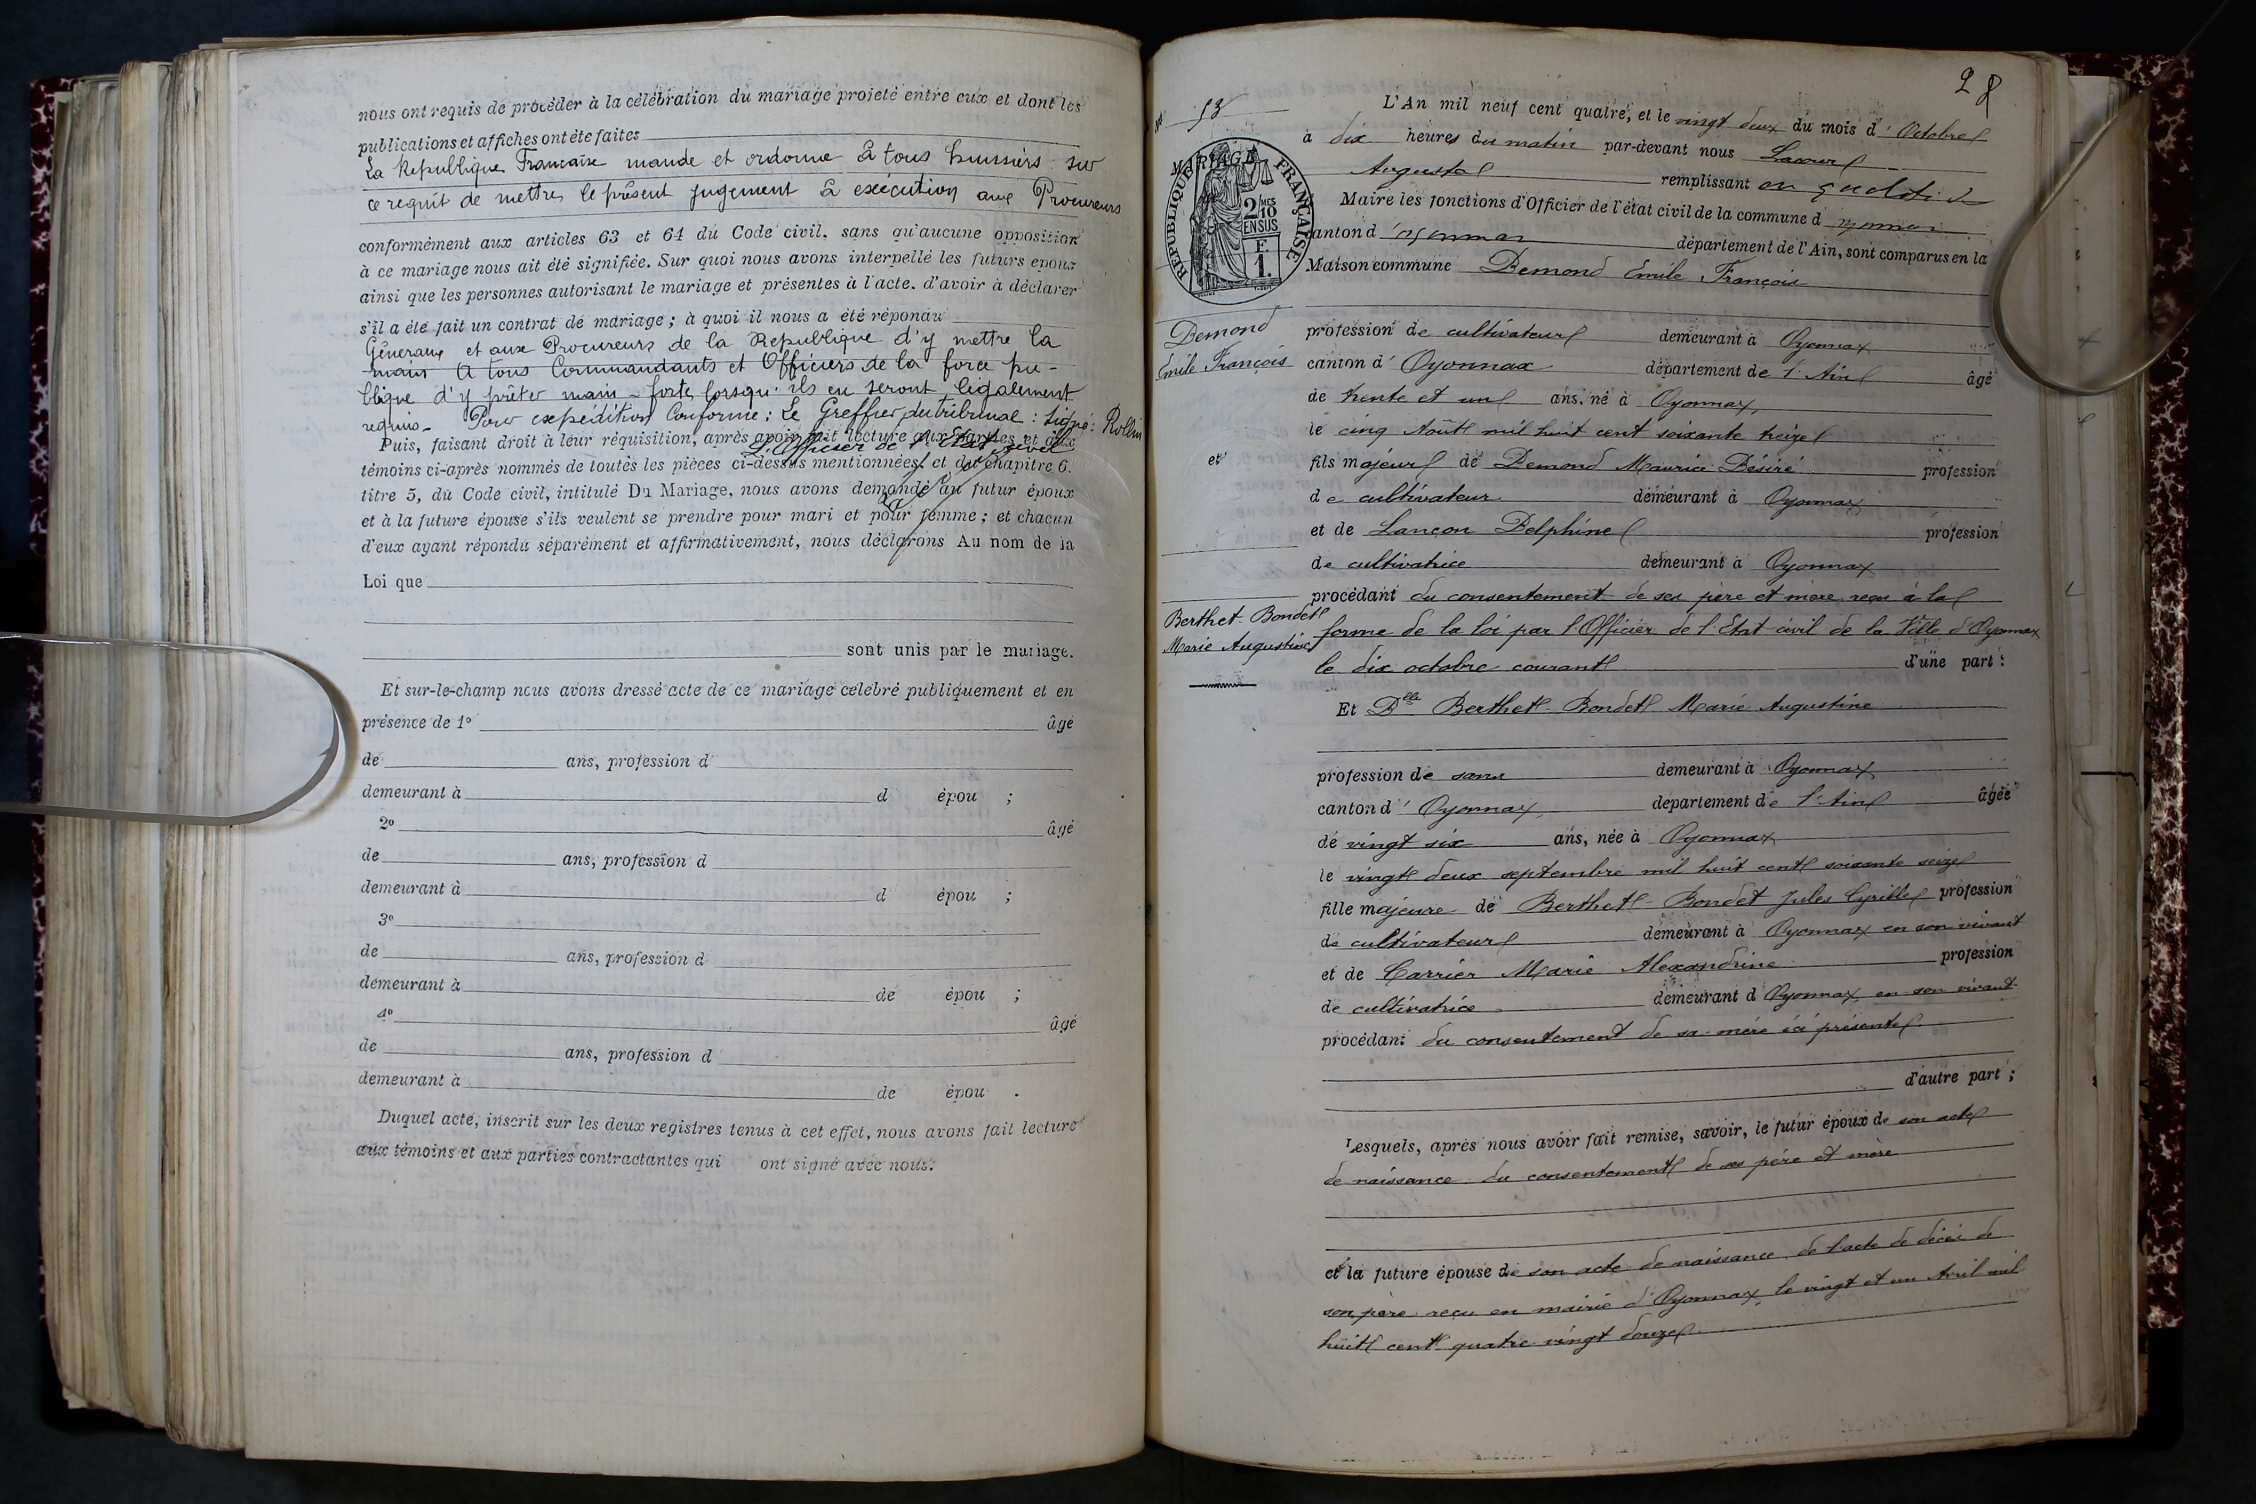 nous ont requis de procéder à la célébration du mariage projeté entre eux et dont les
publications et affiches ont été faites
La République Française mande et ordonne à tous huissiers sur
ce requit de mettre le présent jugement à exécution aux Procureurs
conformément aux articles 63 et 64 du Code civil, sans qu'aucune opposition
à ce mariage nous ait été signifiée. Sur quoi nous avons interpellé les futurs époux
ainsi que les personnes autorisant le mariage et présentes à l'acte, d'avoir à déclarer
s'il a été fait un contrat de mariage ; à quoi il nous a été répondu
Généraux et aux Procureurs de la République d'y mettre la
main A tous Commandants et Officiers de la force pu-
blique d'y prêter main-forte lorsqu'ils en seront légalement
requis - Pour expédition Conforme : Le Greffier du tribunal : Signé : Rollin
Puis, faisant droit à leur réquisition, après avoir fait lecture aux parties et aux
L'Officier de l'Etat civil
témoins ci-après nommés de toutes les pièces ci-dessus mentionnées, et du chapitre 6.
titre 5, du Code civil, intitulé Du Mariage, nous avons demandé au futur époux
et à la future épouse s'ils veulent se prendre pour mari et pour femme ; et chacun
d'eux ayant répondu séparément et affirmativement, nous déclarons Au nom de la
Loi que
sont unis par le mariage.
Et sur-le-champ nous avons dressé acte de ce mariage célébré publiquement et en
présence de 1º âgé
de ans, profession d
demeurant à d épou ;
2º âgé
de ans, profession d
demeurant à d épou ;
3º
de ans, profession d
demeurant à de épou ;
4º âgé
de ans, profession d
demeurant à de épou .
Duquel acte, inscrit sur les deux registres tenus à cet effet, nous avons fait lecture
aux témoins et aux parties contractantes qui ont signé avec nous.
28
53
L'An mil neuf cent quatre, et le vingt deux du mois d'Octobre
à dix heures du matin par-devant nous Lacour
Auguste remplissant en qualité de
Maire les fonctions d'Officier de l'état civil de la commune d'oyonnax
canton d'oyonnax département de l'Ain, sont comparus en la
Maison commune Demond Emile François
MARIAGE
RÉPUBLIQUE FRANÇAISE
2/10 MES
EN SUS
F.
1.
Demond
Emile François
et
Berthet-Bondet
Marie Augustine
profession de cultivateur demeurant à Oyonnax
canton d'Oyonnax département de l'Ain âgé
de trente et un ans, né à Oyonnax,
le cinq Août mil huit cent soixante treize
fils majeur de Demond Maurice Désiré profession
de cultivateur demeurant à Oyonnax
et de Lançon Delphine profession
de cultivatrice demeurant à Oyonnax
procédant du consentement de ses père et mère reçu à la
forme de la loi par l'Officier de l'Etat civil de la Ville d'Oyonnax
le dix octobre courant d'une part :
Et Dlle Berthet-Bondet Marie Augustine
profession de demeurant à Oyonnax
canton d'Oyonnax département de l'Ain âgée
de vingt six ans, née à Oyonnax
le vingt deux septembre mil huit cent soixante seize
fille majeure de Berthet-Bondet Jules Cyrille profession
de cultivateur demeurant à Oyonnax en son vivant
et de Carrier Marie Alexandrine profession
de cultivatrice demeurant à Oyonnax en son vivant
procédant du consentement de sa mère ici présente
d'autre part ;
Lesquels, après nous avoir fait remise, savoir, le futur époux de son acte
de naissance du consentement de ses père et mère
et la future épouse de son acte de naissance de l'acte de décès de
son père reçu en mairie d'Oyonnax le vingt et un Avril mil
huit cent quatre vingt douze